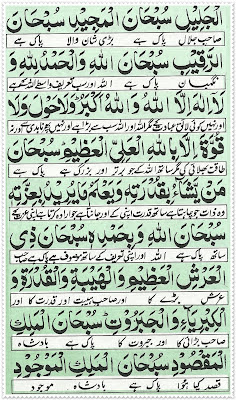 الْجَلِيْلِ سُبْحَانَ الْمَجِيْدِ سُبْحَانَ
صاحب جلال پاک ہے بڑی شان والا پاک ہے
الرَّقِيْبِ سُبْحَانَ اللهِ وَالْحَمْدُ لِلّٰهِ وَ
نگہبان پاک ہے اللہ اور سب تعریف واسطے اللہ کے ہے
لَا اِلٰهَ اِلَّا اللهُ وَاللهُ اَكْبَرُ وَلَا حَوْلَ وَلَا
اور نہیں کوئی لائق عبادت کے مگر اللہ اور اللہ سب سے بڑا ہے اور نہیں
قُوَّةَ اِلَّا بِاللهِ الْعَلِيِّ الْعَظِيْمِ سُبْحَانَ
طاقت بھلائی کی مگر ساتھ اللہ کے جو برتر اور بزرگ ہے پاک ہے
مَنْ يَّشَاءُ بِقُدْرَتِهٖ وَيَعْلَمُ مَايُرِيْدُ بِعِزَّتِهٖ
وہ ذات جو چاہتا ہے ساتھ قدرت اپنی کے اور جانتا ہے جو ارادہ کرتا ہے اپنی
سُبْحَانَ اللهِ وَبِحَمْدِهٖ سُبْحَانَ ذِي
پاک ہے اللہ اور اپنی تعریف کے ساتھ موصوف ہے پاک ہے صاحب
الْعَرْشِ الْعَظِيْمِ وَالْهَيْبَةِ وَالْقُدْرَةِ وَ
عرش بڑے کا اور صاحب ہیبت اور قدرت کا اور
الْكِبْرِيَآءِ وَالْجَبَرُوْتِ سُبْحَانَ الْمَلِكِ
صاحب بڑائی کا اور جبروت کا پاک ہے بادشاہ
الْمَقْصُوْدِ سُبْحَانَ الْمَلِكِ الْمَوْجُوْدِ
قصد کیا ہوا پاک ہے بادشاہ موجود